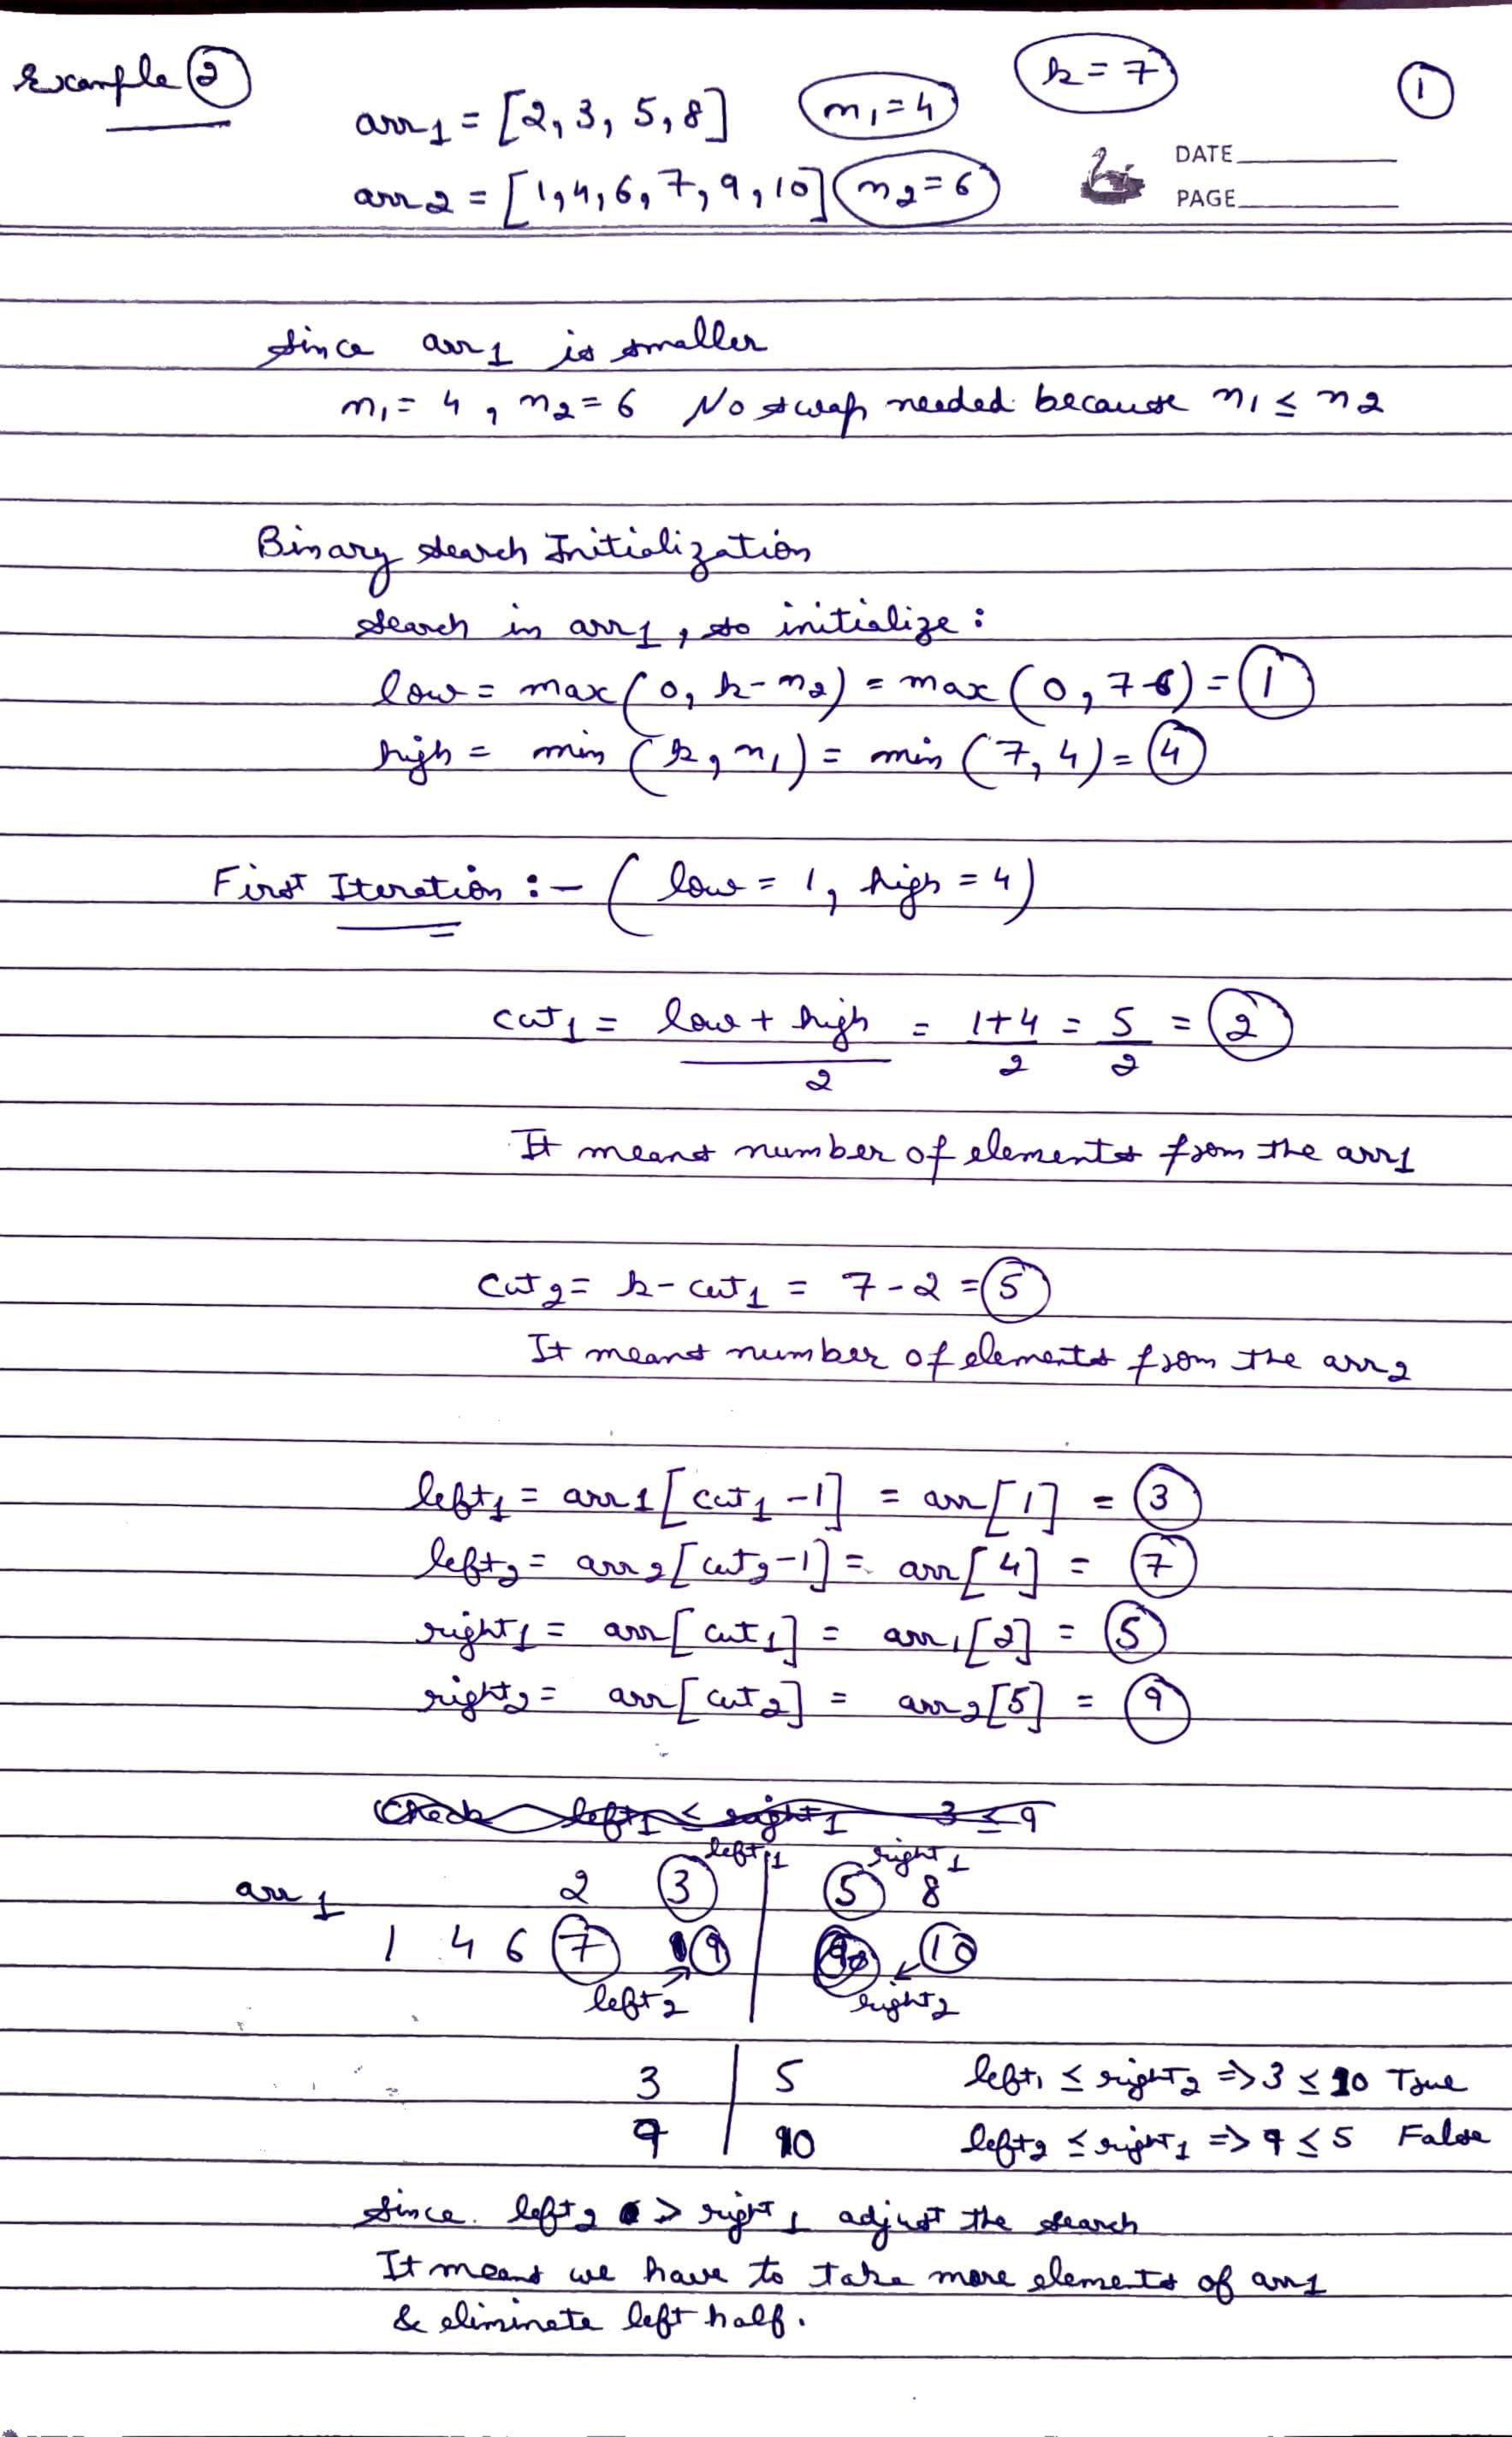 Example 2
k = 7
1
arr1 = [2, 3, 5, 8] n1 = 4
DATE
arr2 = [1, 4, 6, 7, 9, 10] n2 = 6
PAGE
Since arr1 is smaller
n1 = 4, n2 = 6 No swap needed because n1 ≤ n2
Binary search Initialization
search in arr1, so initialize :
low = max(0, k - n2) = max(0, 7-6) = 1
high = min(k, n1) = min(7, 4) = 4
First Iteration :- (low = 1, high = 4)
cut1 = (low + high)/2 = (1+4)/2 = 5/2 = 2
It means number of elements from the arr1
cut2 = k - cut1 = 7 - 2 = 5
It means number of elements from the arr2
left1 = arr1[cut1 -1] = arr[1] = 3
left2 = arr2[cut2-1] = arr[4] = 7
right1 = arr[cut1] = arr1[2] = 5
right2 = arr[cut2] = arr2[5] = 9
Check left1 ≤ right1 3 ≤ 9
left1 right1
arr1 2 3 | 5 8
1 4 6 7 9 | 10
left2 right2
3 | 5 left1 ≤ right2 => 3 ≤ 10 True
9 | 10 left2 ≤ right1 => 9 ≤ 5 False
Since left2 > right1 adjust the search
It means we have to take more elements of arr1
& eliminate left half.